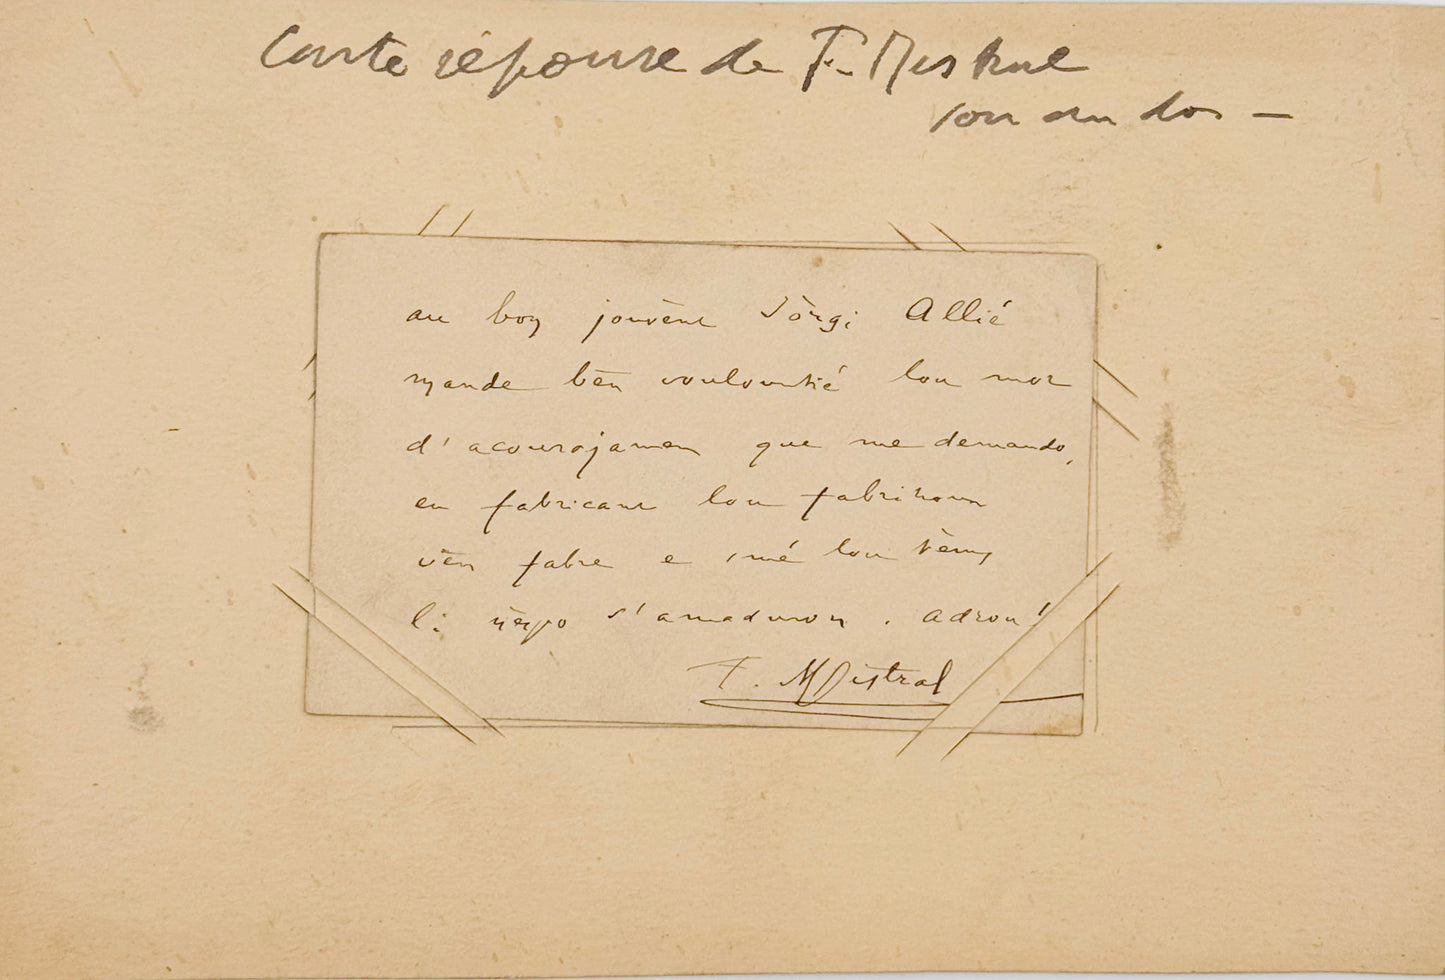 Carte réponse de F. Mistral
au dos —
au bon jouvènt Jòrgi Allié
mande bèn voulountié lou mot
d'acourajamen que me demando,
en fabricant lou fabricoun
vèn fabre e emé lou tèms
li nèspo s'amaduron. adrou!
F. Mistral